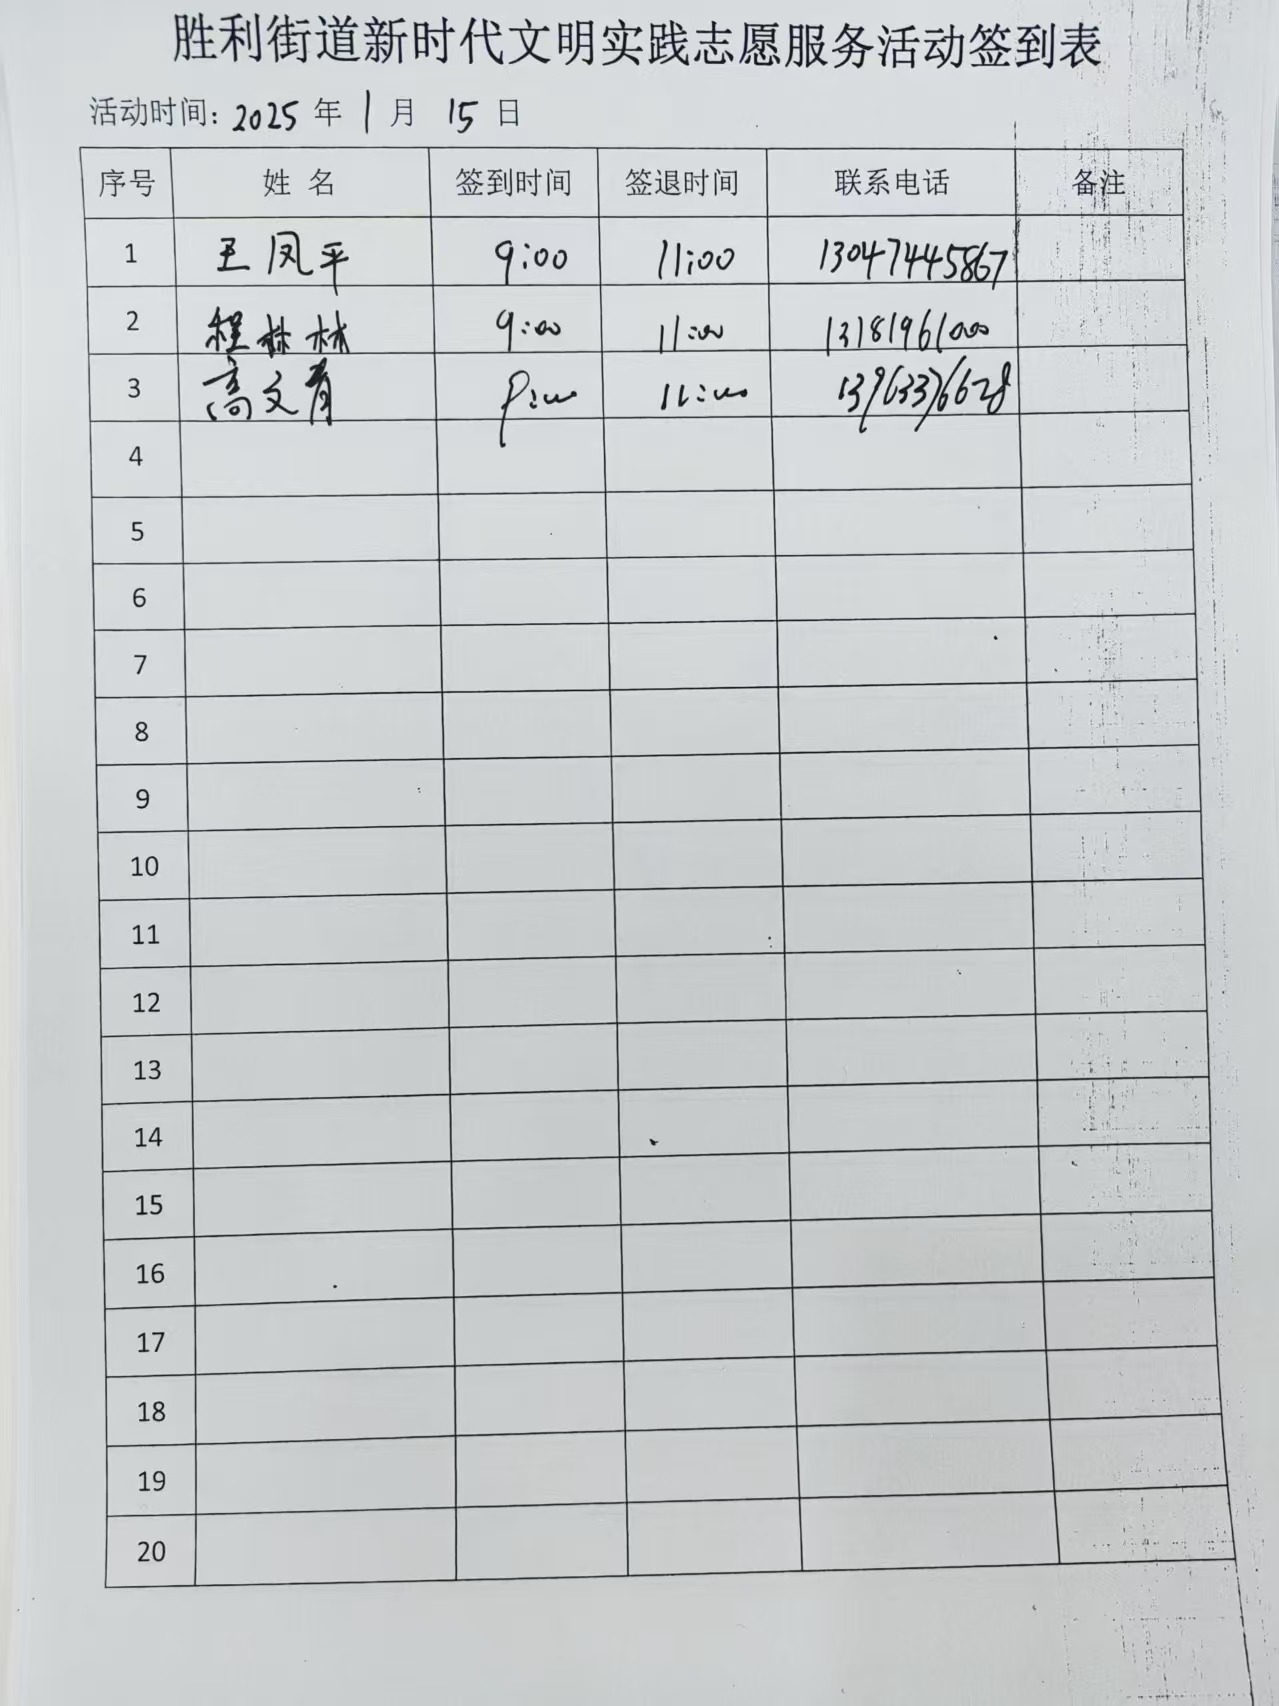 胜利街道新时代文明实践志愿服务活动签到表
活动时间: 2025 年 1 月 15 日
序号 姓 名 签到时间 签退时间 联系电话 备注
1 王凤平 9:00 11:00 13047445867
2 程林林 9:00 11:00 13181961000
3 高文青 9:00 11:00 13963376628
4
5
6
7
8
9
10
11
12
13
14
15
16
17
18
19
20